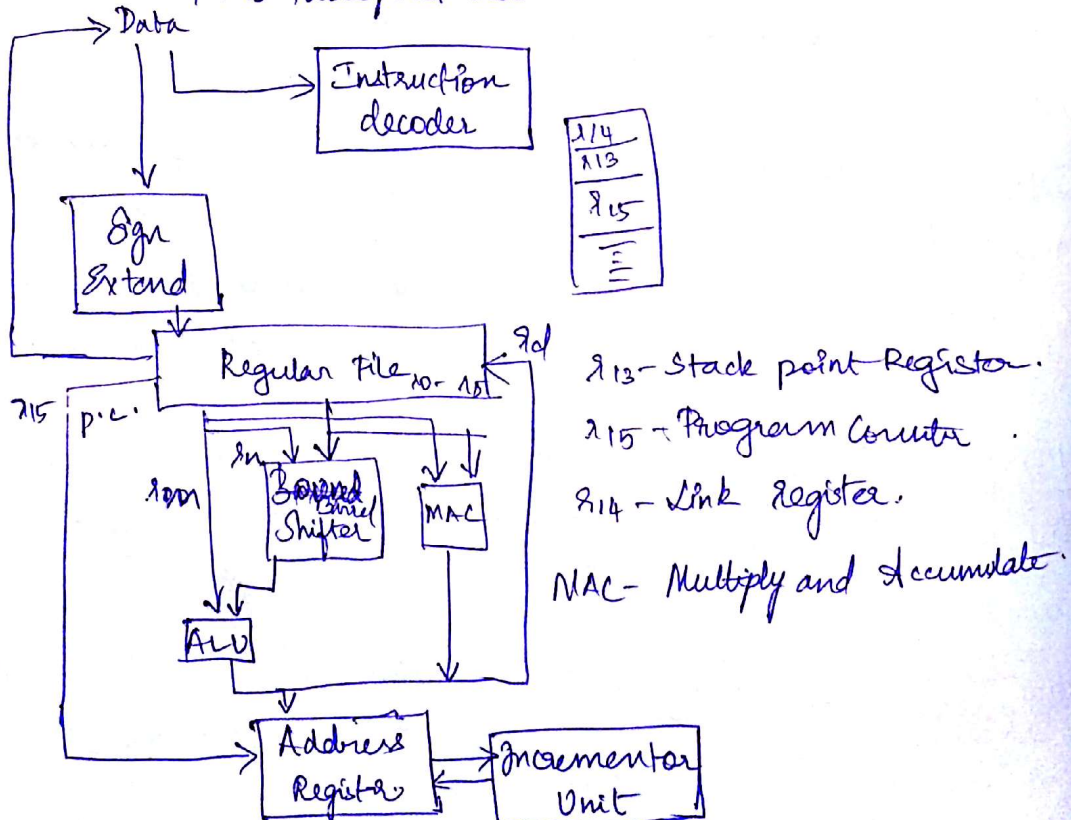 Data
Instruction
decoder
r14
r13
r15
Sgn
Extend
Regular File r0 - r15
rd
r15 p.c.
rm
rn
Barrel
Shifter
MAC
ALU
Address
Register
Incrementor
Unit
r13 - Stack point Register.
r15 - Program Counter.
r14 - Link register.
MAC - Multiply and Accumulate.